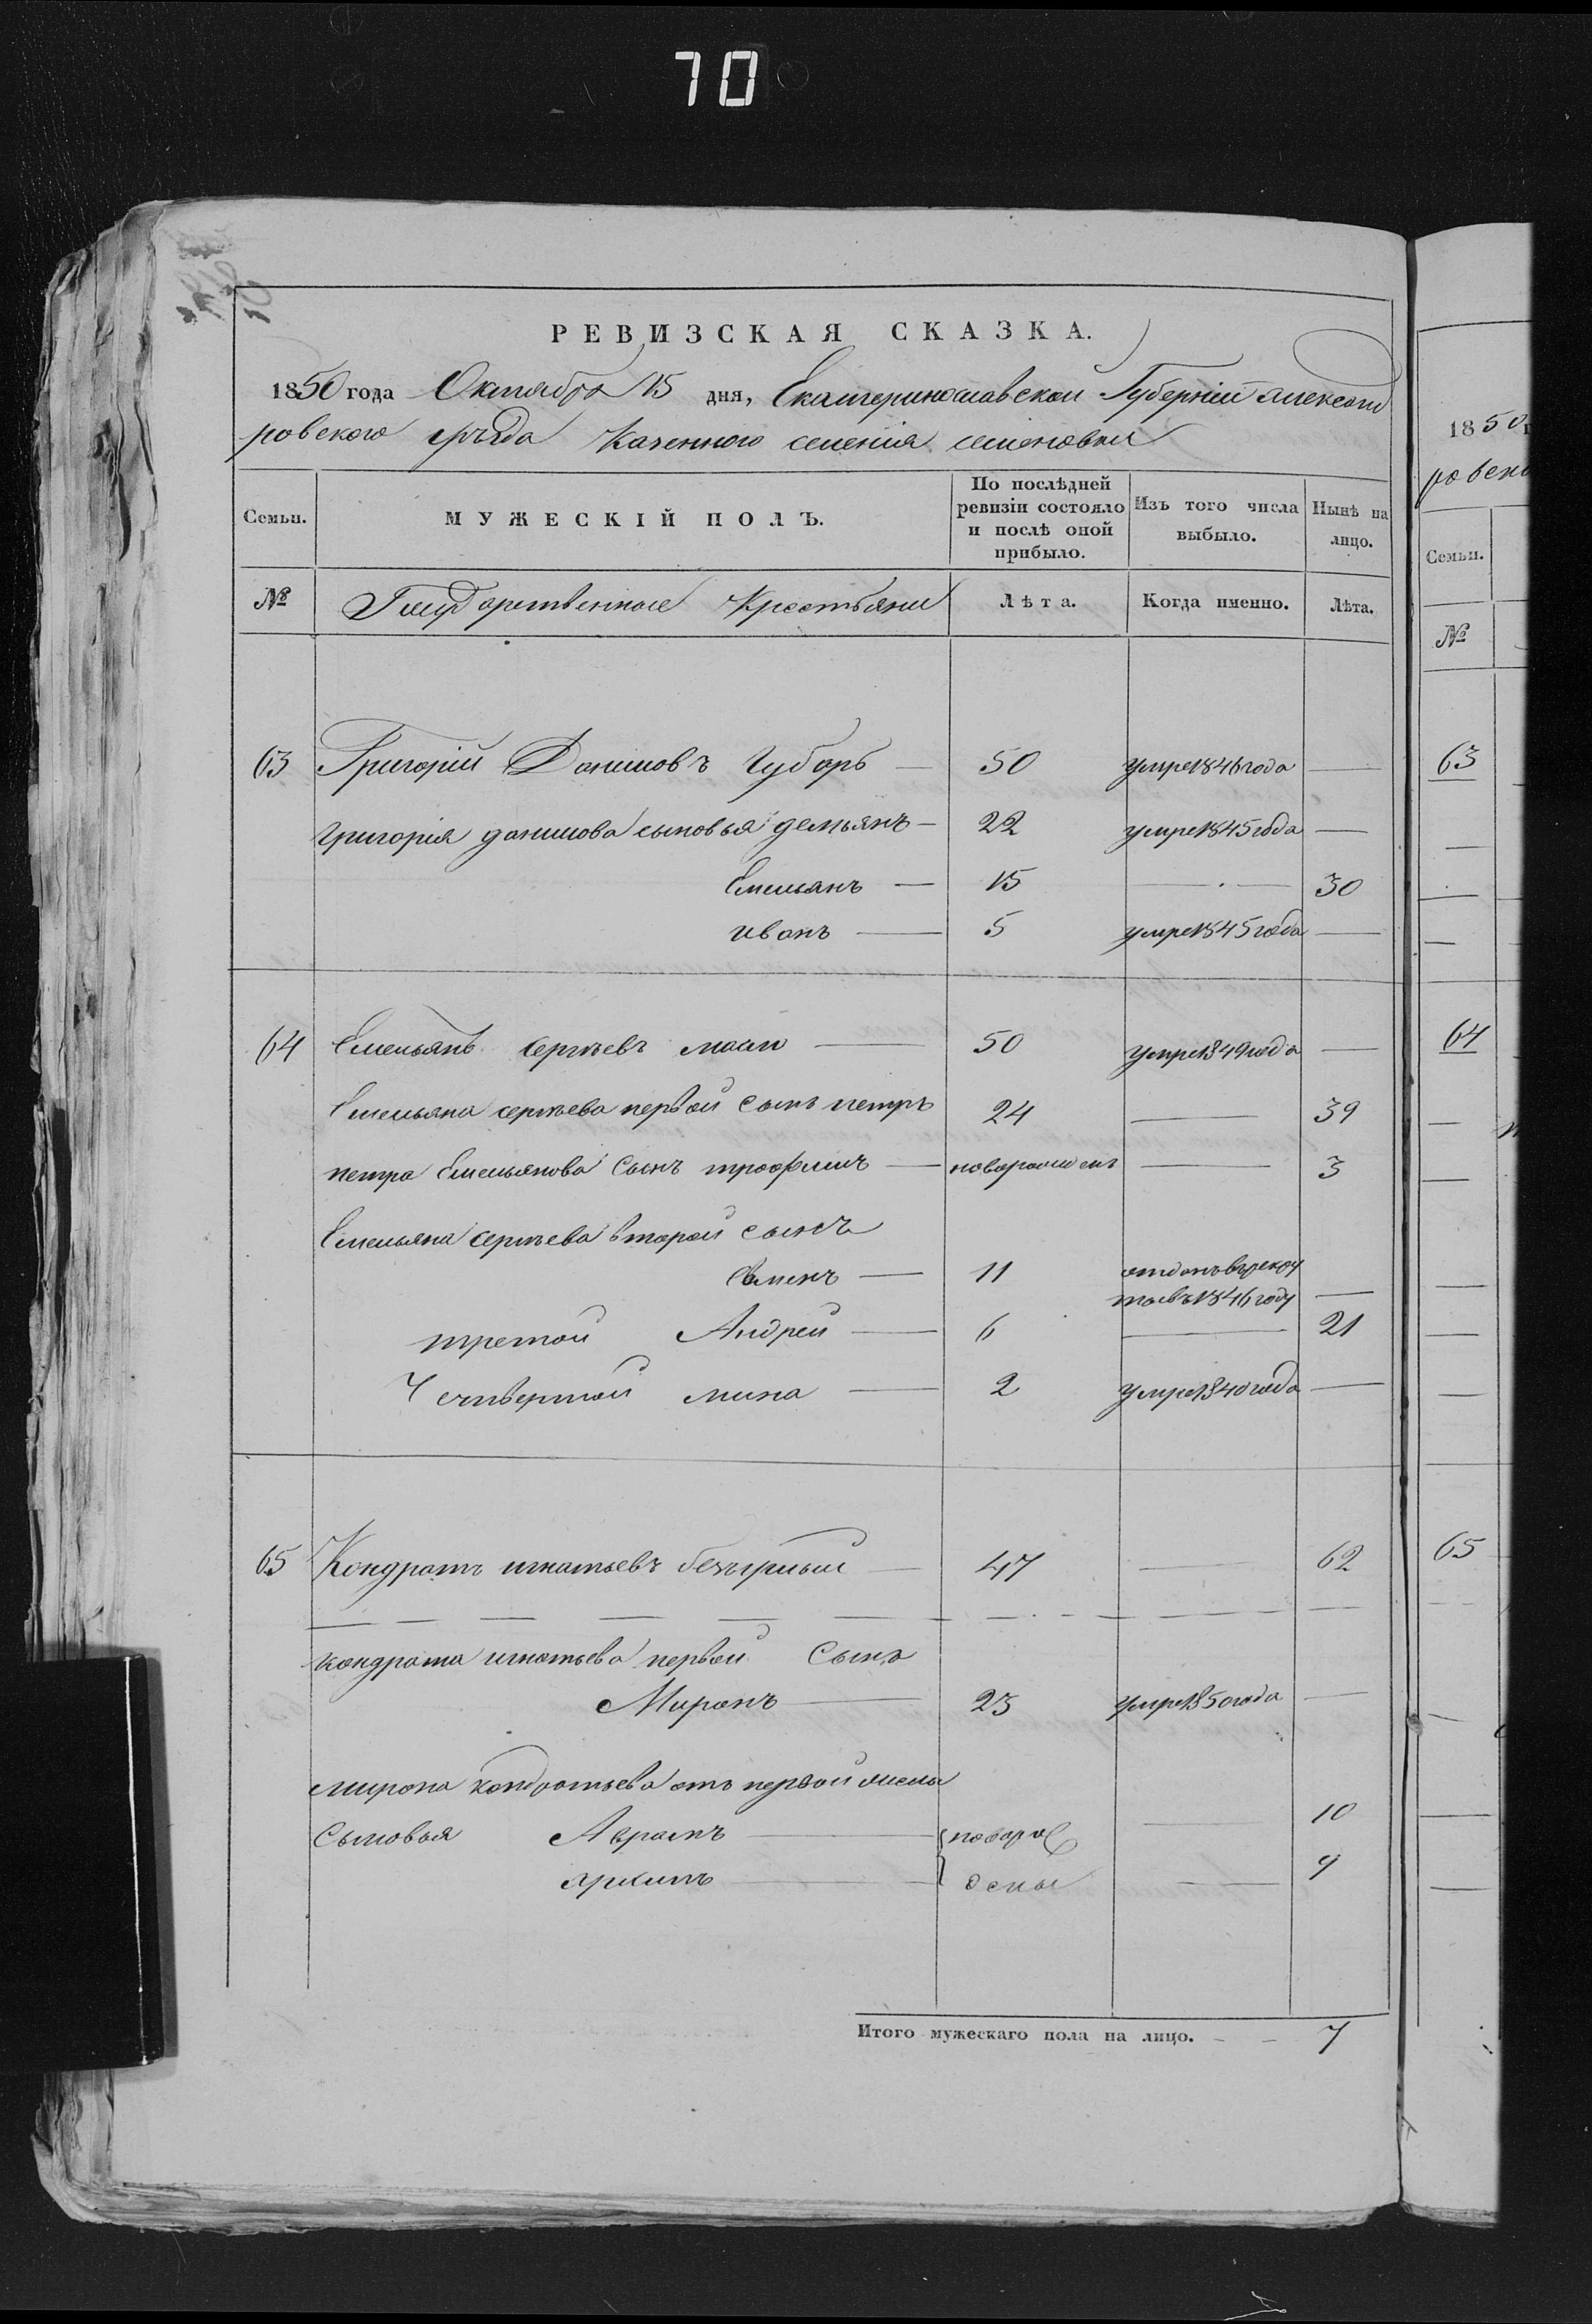 70
РЕВИЗСКАЯ СКАЗКА.
1850 года Октября 15 дня, Екатеринославской Губерніи Александ
ровского уѣзда Казенного селенія семеновки
Семьи. МУЖЕСКІЙ ПОЛЪ. По послѣдней ревизіи состояло и послѣ оной прибыло. Изъ того числа выбыло. Нынѣ на лицо.
№ Государственные Крестьяни Лѣта. Когда именно. Лѣта.
63 Григорій Даниловъ Чубарь — 50 умре 1846 года —
Григорія данилова сыновья демьянъ — 22 умре 1845 года —
Емельянъ — 15 — 30
иванъ — 5 умре 1845 года —
64 Емельянъ сергѣевъ — 50 умре 1849 года —
Емельяна сергѣева первой сынъ петръ 24 — 39
петра Емельянова сынъ трофимъ — новорожденъ — 3
Емельяна сергѣева второй сынъ
Семенъ — 11 отданъ въ рекру
ты въ 1846 году —
третой Андрей — 6 — 21
Четвертой мина — 2 умре 1840 года —
65 Кондратъ игнатьевъ — 47 — 62
кондрата игнатьева первой Сынъ
Миронъ — 23 умре 1850 года —
мирона кондратьева отъ первой жены
Сыновья Авраамъ — новорож — 10
— дены — 9
Итого мужескаго пола на лицо. — — 7
1850 г
ровско
Семьи.
№
63
64
65